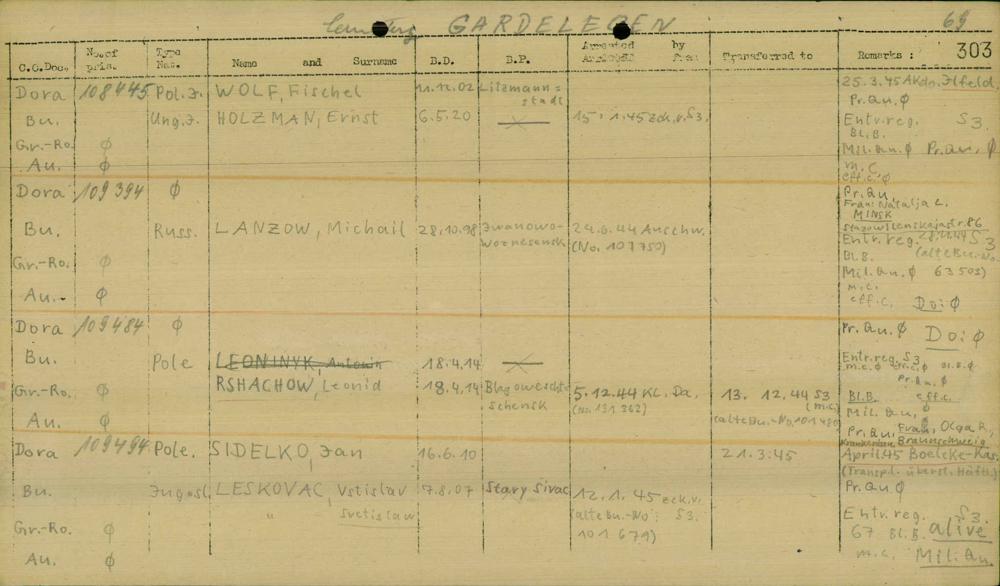 GARDELEGEN 69
C.C.Doc. No. of pris. Type Nas. Name and Surname B.D. B.P. Arrested by Transferred to Remarks : 303
Dora 108445 Pol.J. WOLF, Fischel 11.12.02 Litzmann= 25.3.45 Akdo. Ilfeld,
stadt Pr.Qu. Ø
Bu. Ung.J. HOLZMAN, Ernst 6.5.20 15. 1.45 zck.v. S3. Entr.reg. S3
Bl.B.
Gr.-Ro. Ø Mil.Qu. Ø Pr.Qu. Ø
Au. Ø m.c.
eff.c. Ø
Dora 109394 Ø Pr.Qu.
Frau: Natalja L.
MINSK
Bu. Russ. LANZOW, Michail 28.10.98 Iwanowo- 29.6.44 Auschw.
Wornesensk (No. 107750) Entr.reg. S3
(alte Bu.-No.
Gr.-Ro. Ø Bl.B.
Mil.Qu. Ø 63503)
Au.- Ø m.c.
eff.c. Do: Ø
Dora 109484 Ø Pr.Qu. Ø Do: Ø
Bu. Pole LEONINYK, Antonin 18.4.14 Entr.reg. S3
m.c. Ø eff.c. Ø Bl.B. Ø
RSHACHOW, Leonid 18.4.14 Blagowescht- Pr.Qu. Ø
Gr.-Ro. Ø schensk 5.12.44 KL. Da. 13. 12.44 S3 Bl.B. eff.c.
(No. 131362) (m.c.) Mil.Qu. Ø
Au. Ø (alte Bu.-No. 101480) Pr.Qu. Frau, Olga R.,
Braunschweig
Dora 109494 Pole. SIDELKO, Jan 16.6.10 21.3.45 April 45 Boelcke-Kas.
(Transp.l. überst. Häftl.)
Bu. Jugosl. LESKOVAC, Vstislav 7.8.07 Stary Sivac 12.1.45 zck.v. Pr.Qu Ø
" Svetislaw (alte Bu.-No: S3. Entr.reg. S3.
Gr.-Ro. Ø 101679) 67 Bl.B. alive
Au. Ø m.c. Mil.Qu.